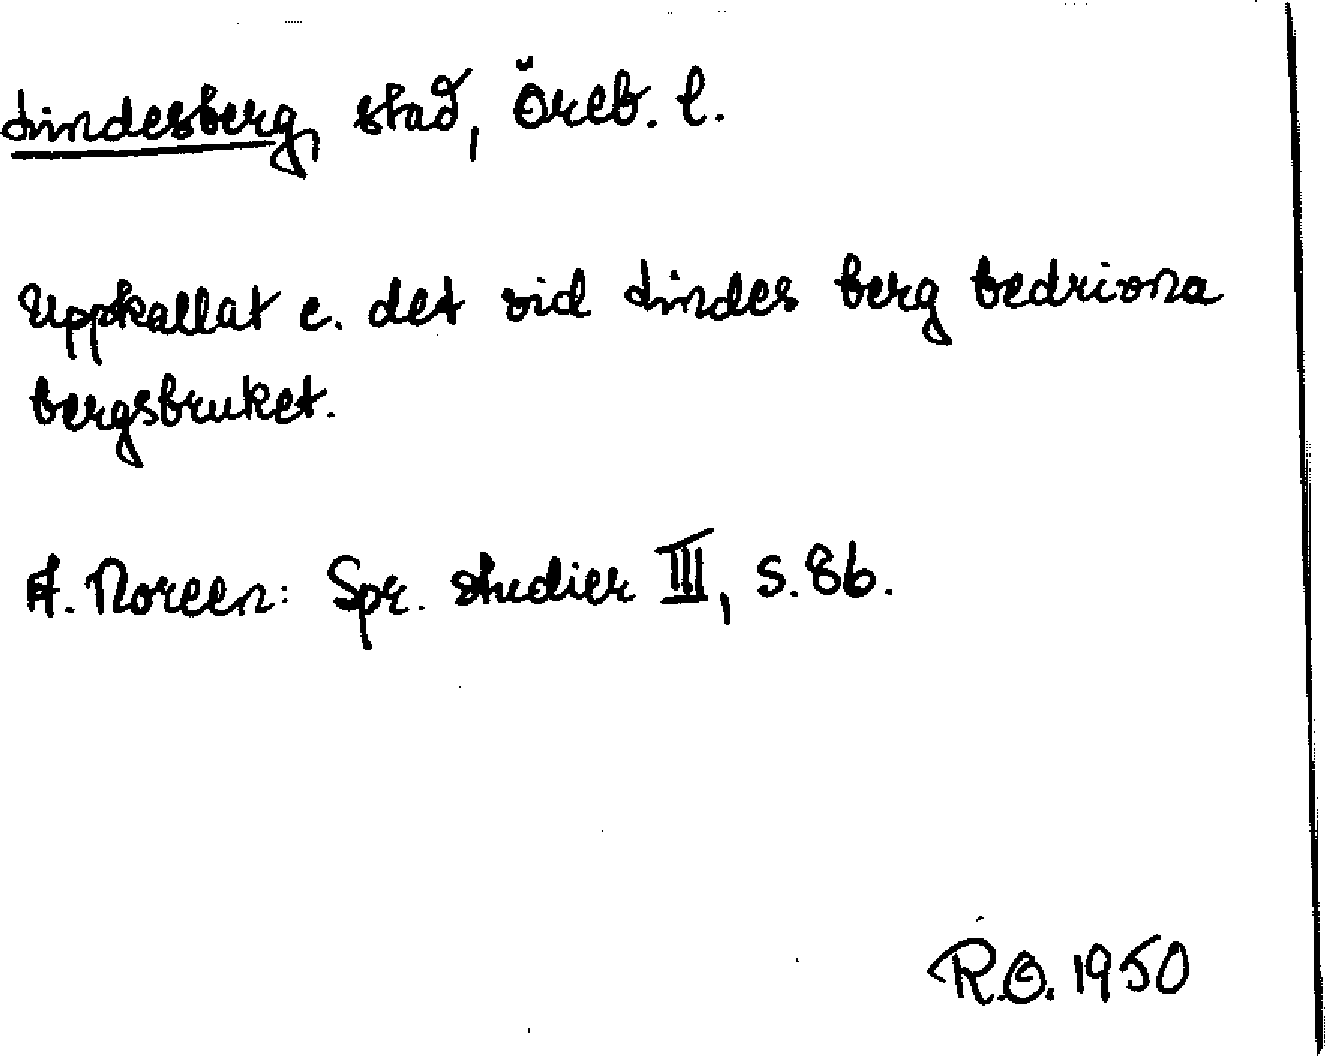 Lindesberg, stad, Öreb. l.
Uppkallat e. det vid Lindes berg bedrivna
bergsbruket.
A. Noreen: Spr. studier III, s. 86.
R.O. 1950